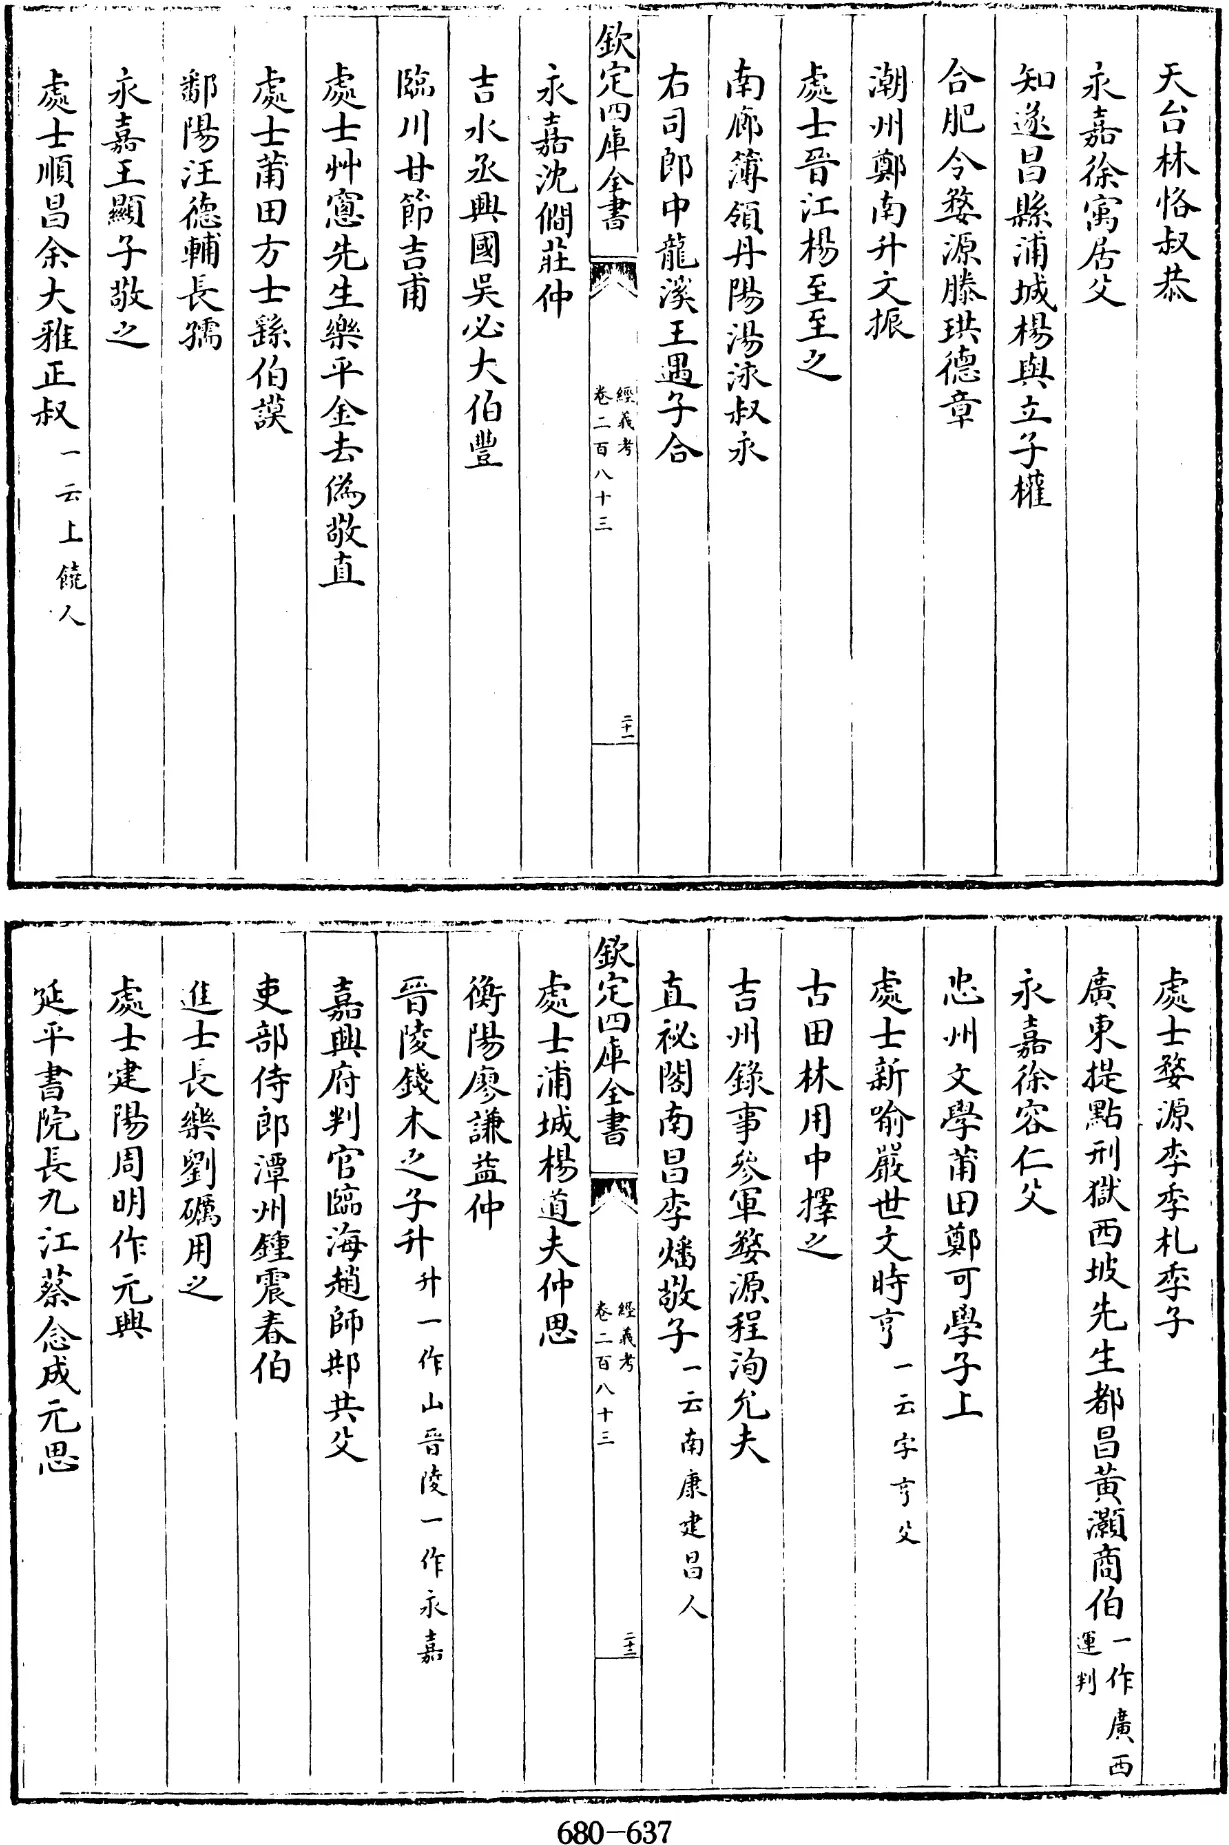 天台林恪叔恭
永嘉徐㝢居父
知遂昌縣浦城楊與立子權
合肥令婺源滕珙德章
潮州鄭南升文振
處士晉江楊至至之
南廊簿領丹陽湯泳叔永
右司郎中龍溪王遇子合
欽定四庫全書
經義考
卷二百八十三
二十一
永嘉沈僩莊仲
吉水丞興國吳必大伯豐
臨川甘節吉甫
處士艸窻先生樂平金去偽敬直
處士莆田方士繇伯謨
鄱陽汪德輔長孺
永嘉王顯子敬之
處士順昌余大雅正叔一云上饒人
處士婺源李季札季子
廣東提點刑獄西坡先生都昌黃灝商伯一作廣西運判
永嘉徐容仁父
忠州文學莆田鄭可學子上
處士新喻嚴世文時亨一云字亨父
古田林用中擇之
吉州錄事參軍婺源程洵允夫
直祕閣南昌李燔敬子一云南康建昌人
欽定四庫全書
經義考
卷二百八十三
二十二
處士浦城楊道夫仲思
衡陽廖謙益仲
晉陵錢木之子升升一作山晉陵一作永嘉
嘉興府判官臨海趙師䢼共父
吏部侍郎潭州鍾震春伯
進士長樂劉礪用之
處士建陽周明作元興
延平書院長九江蔡念成元思
680-637